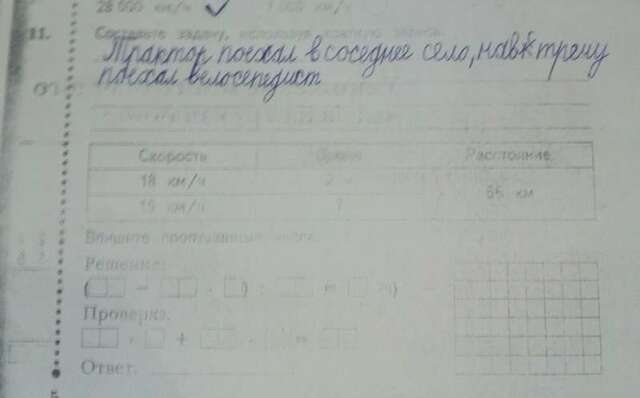 28 000 км/ч
11. Составьте задачу, используя краткую запись.
Трактор поехал в соседнее село, навстречу
поехал велосепедист
Скорость Время Расстояние
18 км/ч 2 ч
65 км
15 км/ч ?
Впишите пропущенные числа.
Решение:
( − · ) : = ч)
Проверка.
· + · =
Ответ.